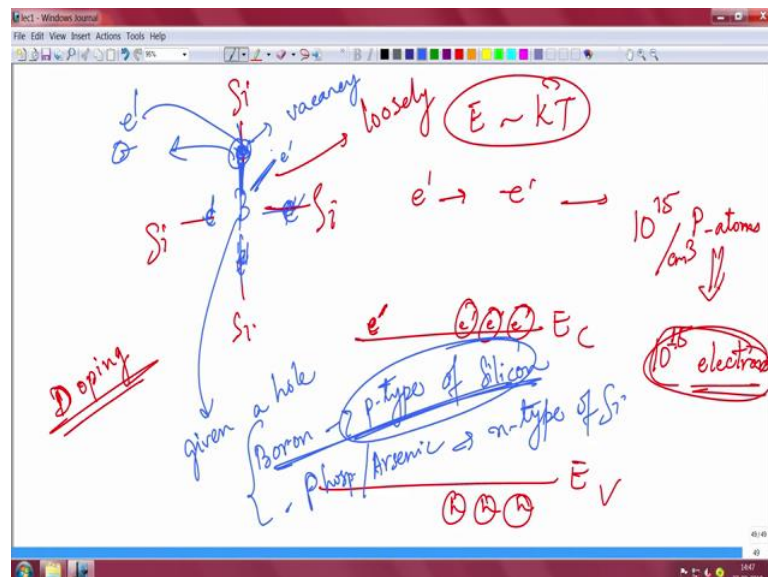 lec1 - Windows Journal
File Edit View Insert Actions Tools Help
98%
Si
e'
vacancy
loosely
E ~ kT
e'
e' → e' →
10^15 /cm3 P-atoms
Si e' B e' Si
Si
10^15 electrons
e' e' e' e' E_C
Doping
given a hole
Boron → p-type of Silicon
Phosp/Arsenic → n-type of Si
E_V
h h h
49/49
49
14:47